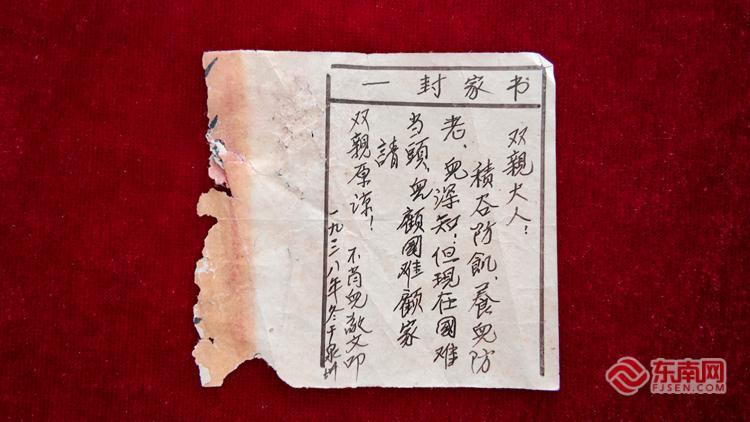 一封家书
双親大人:
積谷防飢、養兒防
老、兒深知:但現在國难
当頭,兒顧國难顧家
請
双親原谅!
不肖兒文叩
一九三八年冬于泉州
东南网
FJSEN.COM